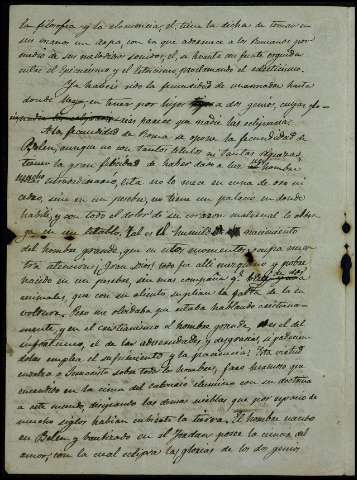 la filosofia y la elocuencia, él, tiene la dicha de tomar en
sus manos un arpa, con la que adormece a los Romanos por
medio de sus melodiosos sonidos, él, se levanta con frente erguida
entre el Epicureismo y el Estoicismo, proclamando el eclecticismo.
Ya habeis oido la fecundidad de
donde en tener por hijos a dos genios, cuyas
mas parece que nadie los eclipsaria:
A la fecundidad de Roma se opone la fecundidad de
Belen, aunque no con tantos titulos ni tantas riquezas,
tener la gran felicidad de haber dado a luz un hombre
extraordinario, esta no lo mece en cuna de oro ni
sino en un pesebre, no tiene un palacio en donde
habite, y con todo el dolor de su corazon maternal lo
en un establo. Tal es el humilde nacimiento
del hombre grande, que en estos momentos, ocupa nues-
tra atencion; Gran Dios! todo fue alli mezquino y pobre
nacido en un pesebre, sin mas compañia que de dos
animales, que con su aliento suplian la falta de la en-
voltura. Pero me olvidaba que estaba hablando cristiana-
mente, y en el cristianismo el hombre grande, es el del
infortunio, el de las adversidades y desgracias, si padecien-
dolas emplea el sufrimiento y la paciencia: Esta virtud
ensalza a Jesucristo sobre todos los hombres, faro hermoso que
encendido en la cima del calvario ilumino con su doctrina
a este mundo, disipando las densas nieblas que por espacio de
muchos siglos habian cubierto la tierra. El hombre nacido
en Belen y bautizado en el Jordan posee la ciencia del
amor, con la cual eclipsa las glorias de los dos genios